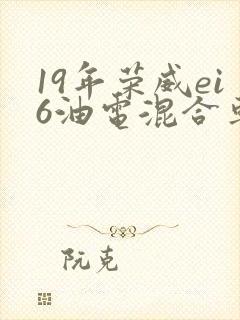 19年荣威ei
6油電混合
阮克